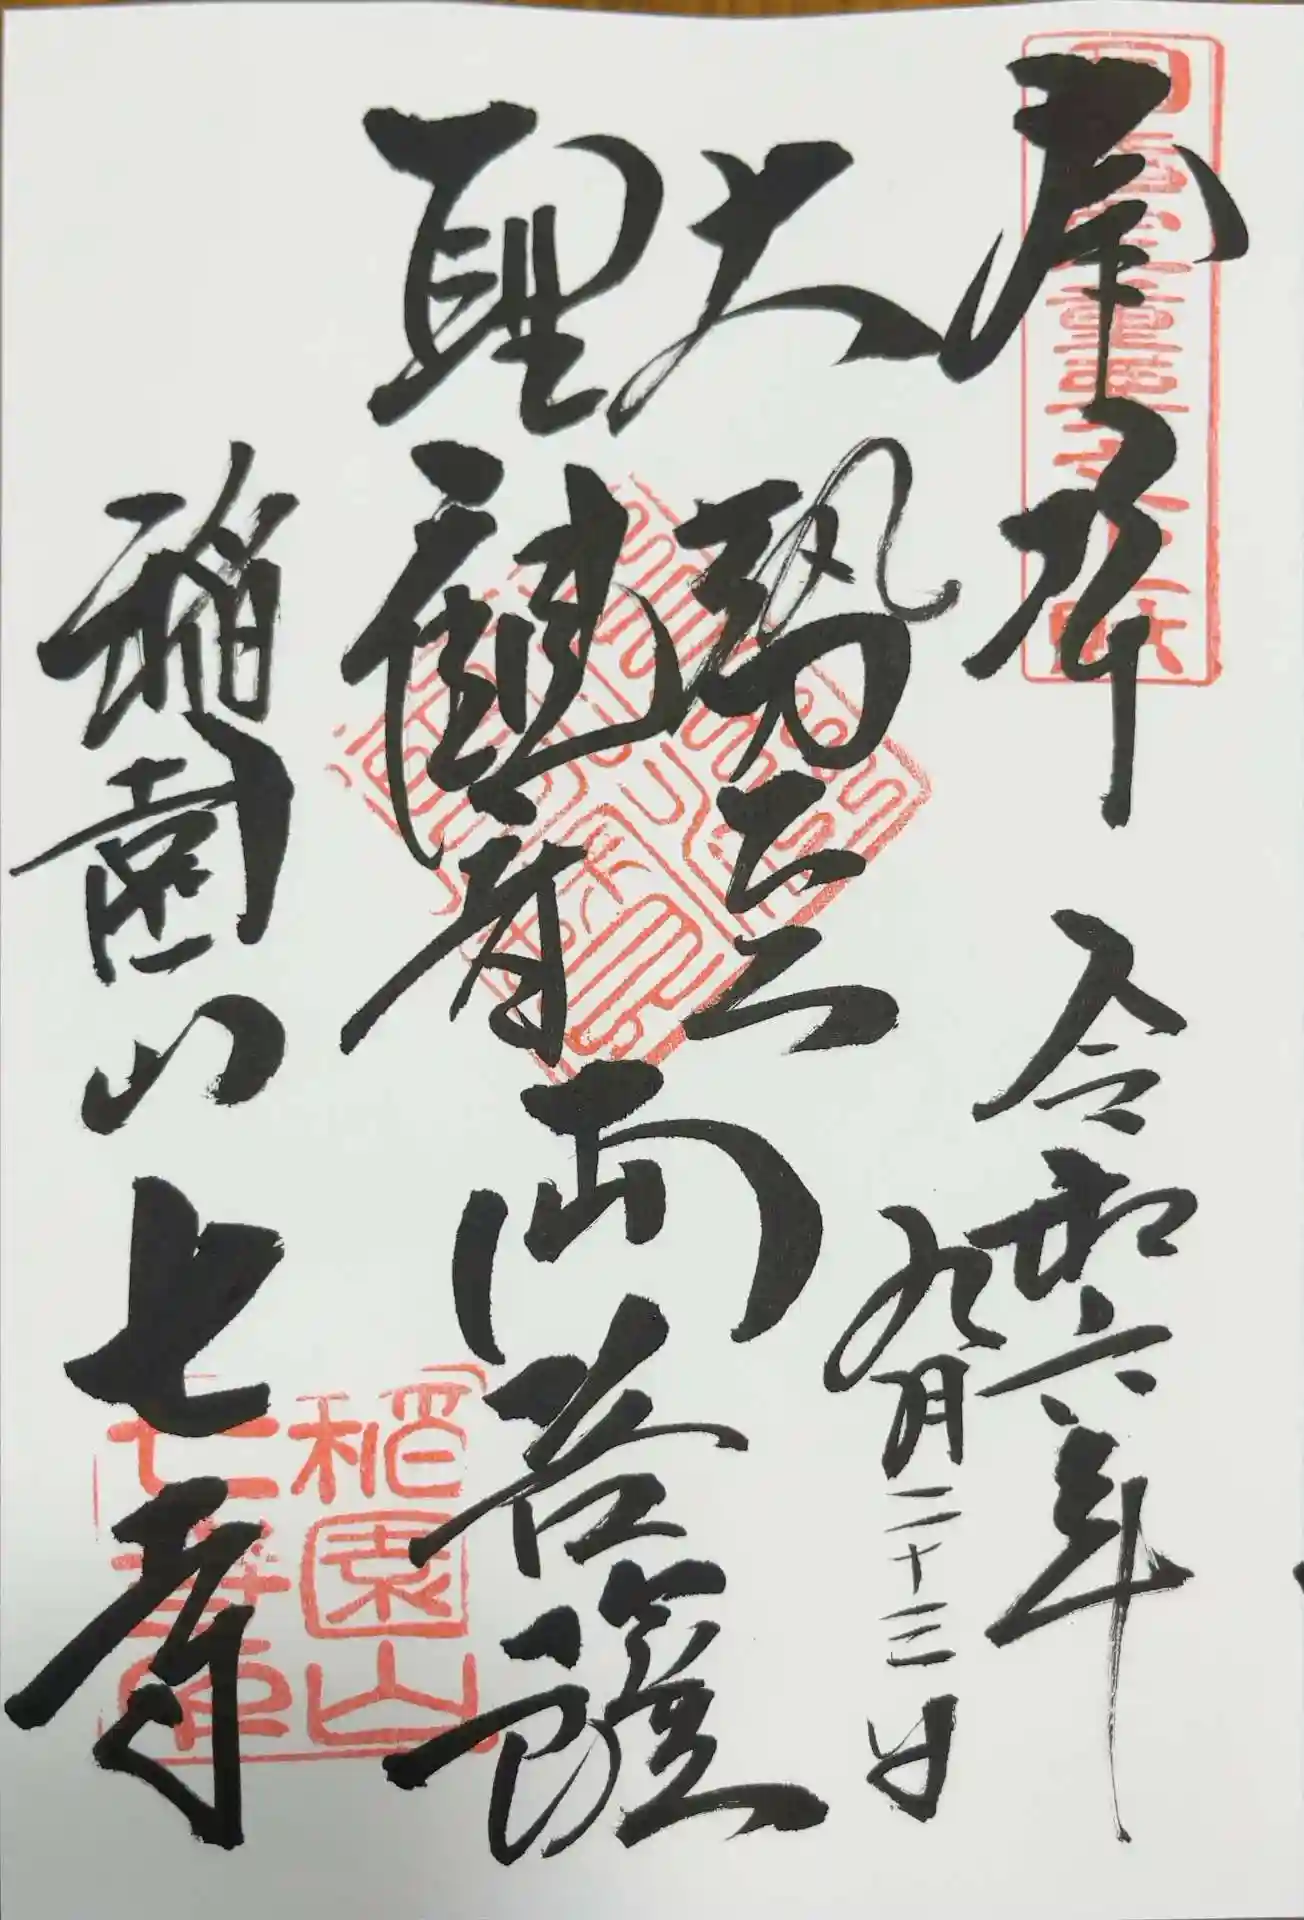 奉拝
令和六年
九月二十三日
大勢至
聖観音
両菩薩
稲園山七寺
稲園山
七寺印